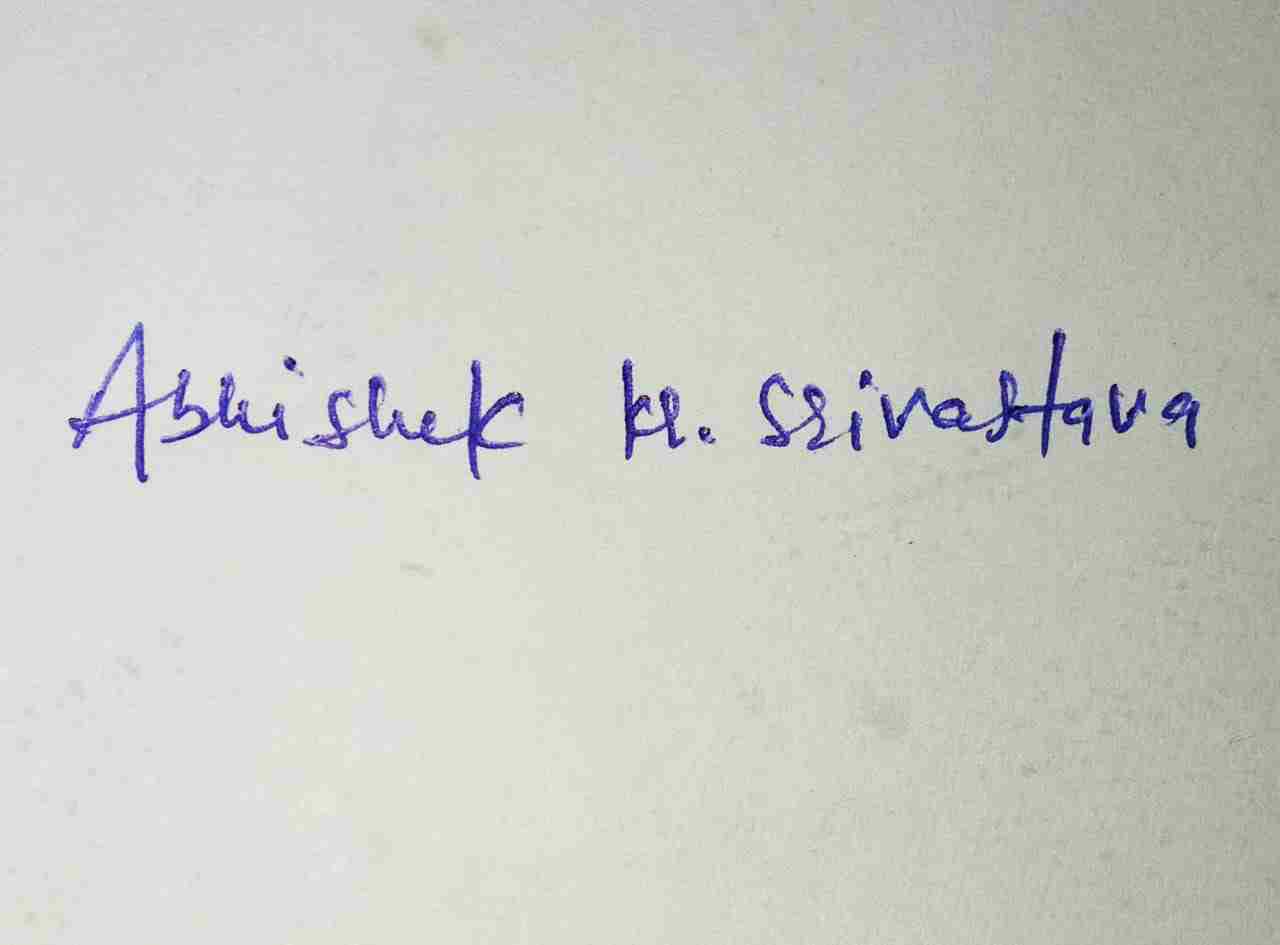 Abhishek Kr. Srivastava